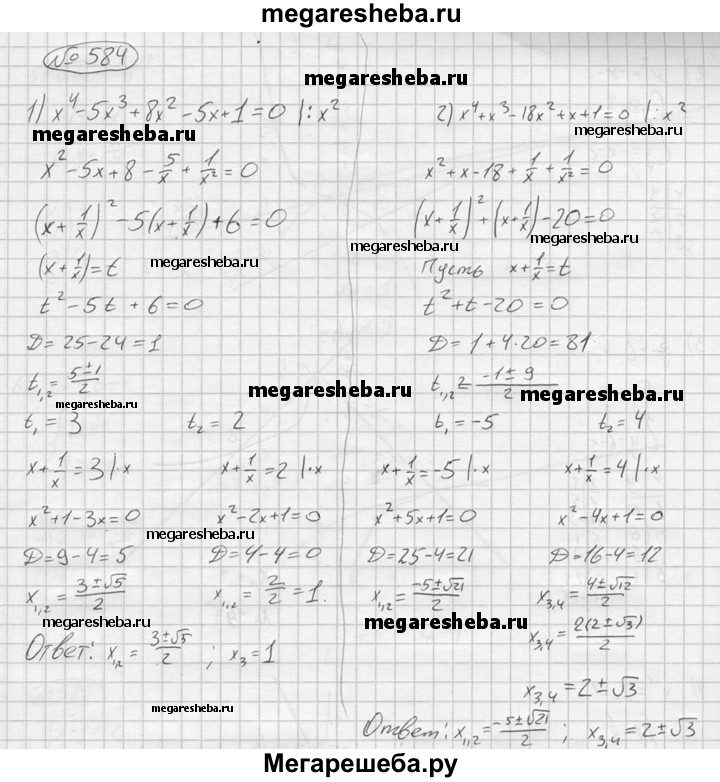 megaresheba.ru
№ 584
1) x⁴ - 5x³ + 8x² - 5x + 1 = 0 |: x²
megaresheba.ru
x² - 5x + 8 - 5/x + 1/x² = 0
(x + 1/x)² - 5(x + 1/x) + 6 = 0
(x + 1/x) = t
megaresheba.ru
t² - 5t + 6 = 0
D = 25 - 24 = 1
t₁,₂ = (5 ± 1)/2
megaresheba.ru
t₁ = 3 t₂ = 2
x + 1/x = 3 |· x x + 1/x = 2 |· x
x² + 1 - 3x = 0 x² - 2x + 1 = 0
megaresheba.ru
D = 9 - 4 = 5 D = 4 - 4 = 0
x₁,₂ = (3 ± √5)/2 x₁,₂ = 2/2 = 1.
megaresheba.ru
Ответ: x₁,₂ = (3 ± √5)/2 ; x₃ = 1
megaresheba.ru
megaresheba.ru
2) x⁴ + x³ - 18x² + x + 1 = 0 |: x²
megaresheba.ru
x² + x - 18 + 1/x + 1/x² = 0
(x + 1/x)² + (x + 1/x) - 20 = 0
megaresheba.ru
Пусть x + 1/x = t
t² + t - 20 = 0
D = 1 + 4·20 = 81
megaresheba.ru
t₁,₂ = (-1 ± 9)/2
megaresheba.ru
t₁ = -5 t₂ = 4
x + 1/x = -5 |· x x + 1/x = 4 |· x
x² + 5x + 1 = 0 x² - 4x + 1 = 0
D = 25 - 4 = 21 D = 16 - 4 = 12
x₁,₂ = (-5 ± √21)/2 x₃,₄ = (4 ± √12)/2
megaresheba.ru
x₃,₄ = 2(2 ± √3)/2
x₃,₄ = 2 ± √3
Ответ: x₁,₂ = (-5 ± √21)/2 ; x₃,₄ = 2 ± √3
Мегарешеба.ру